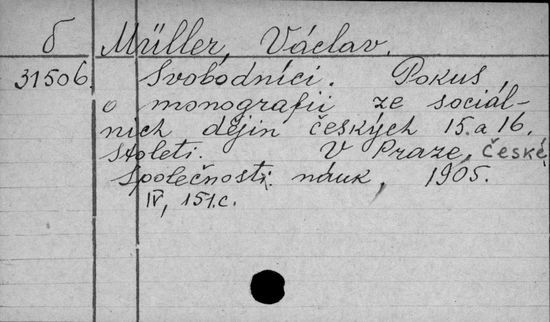 б Müller, Václav.
31506. Svobodníci. Pokus
o monografii ze sociál-
ních dějin českých 15. a 16.
století. V Praze, České
společnosti náuk, 1905.
IV, 151.c.